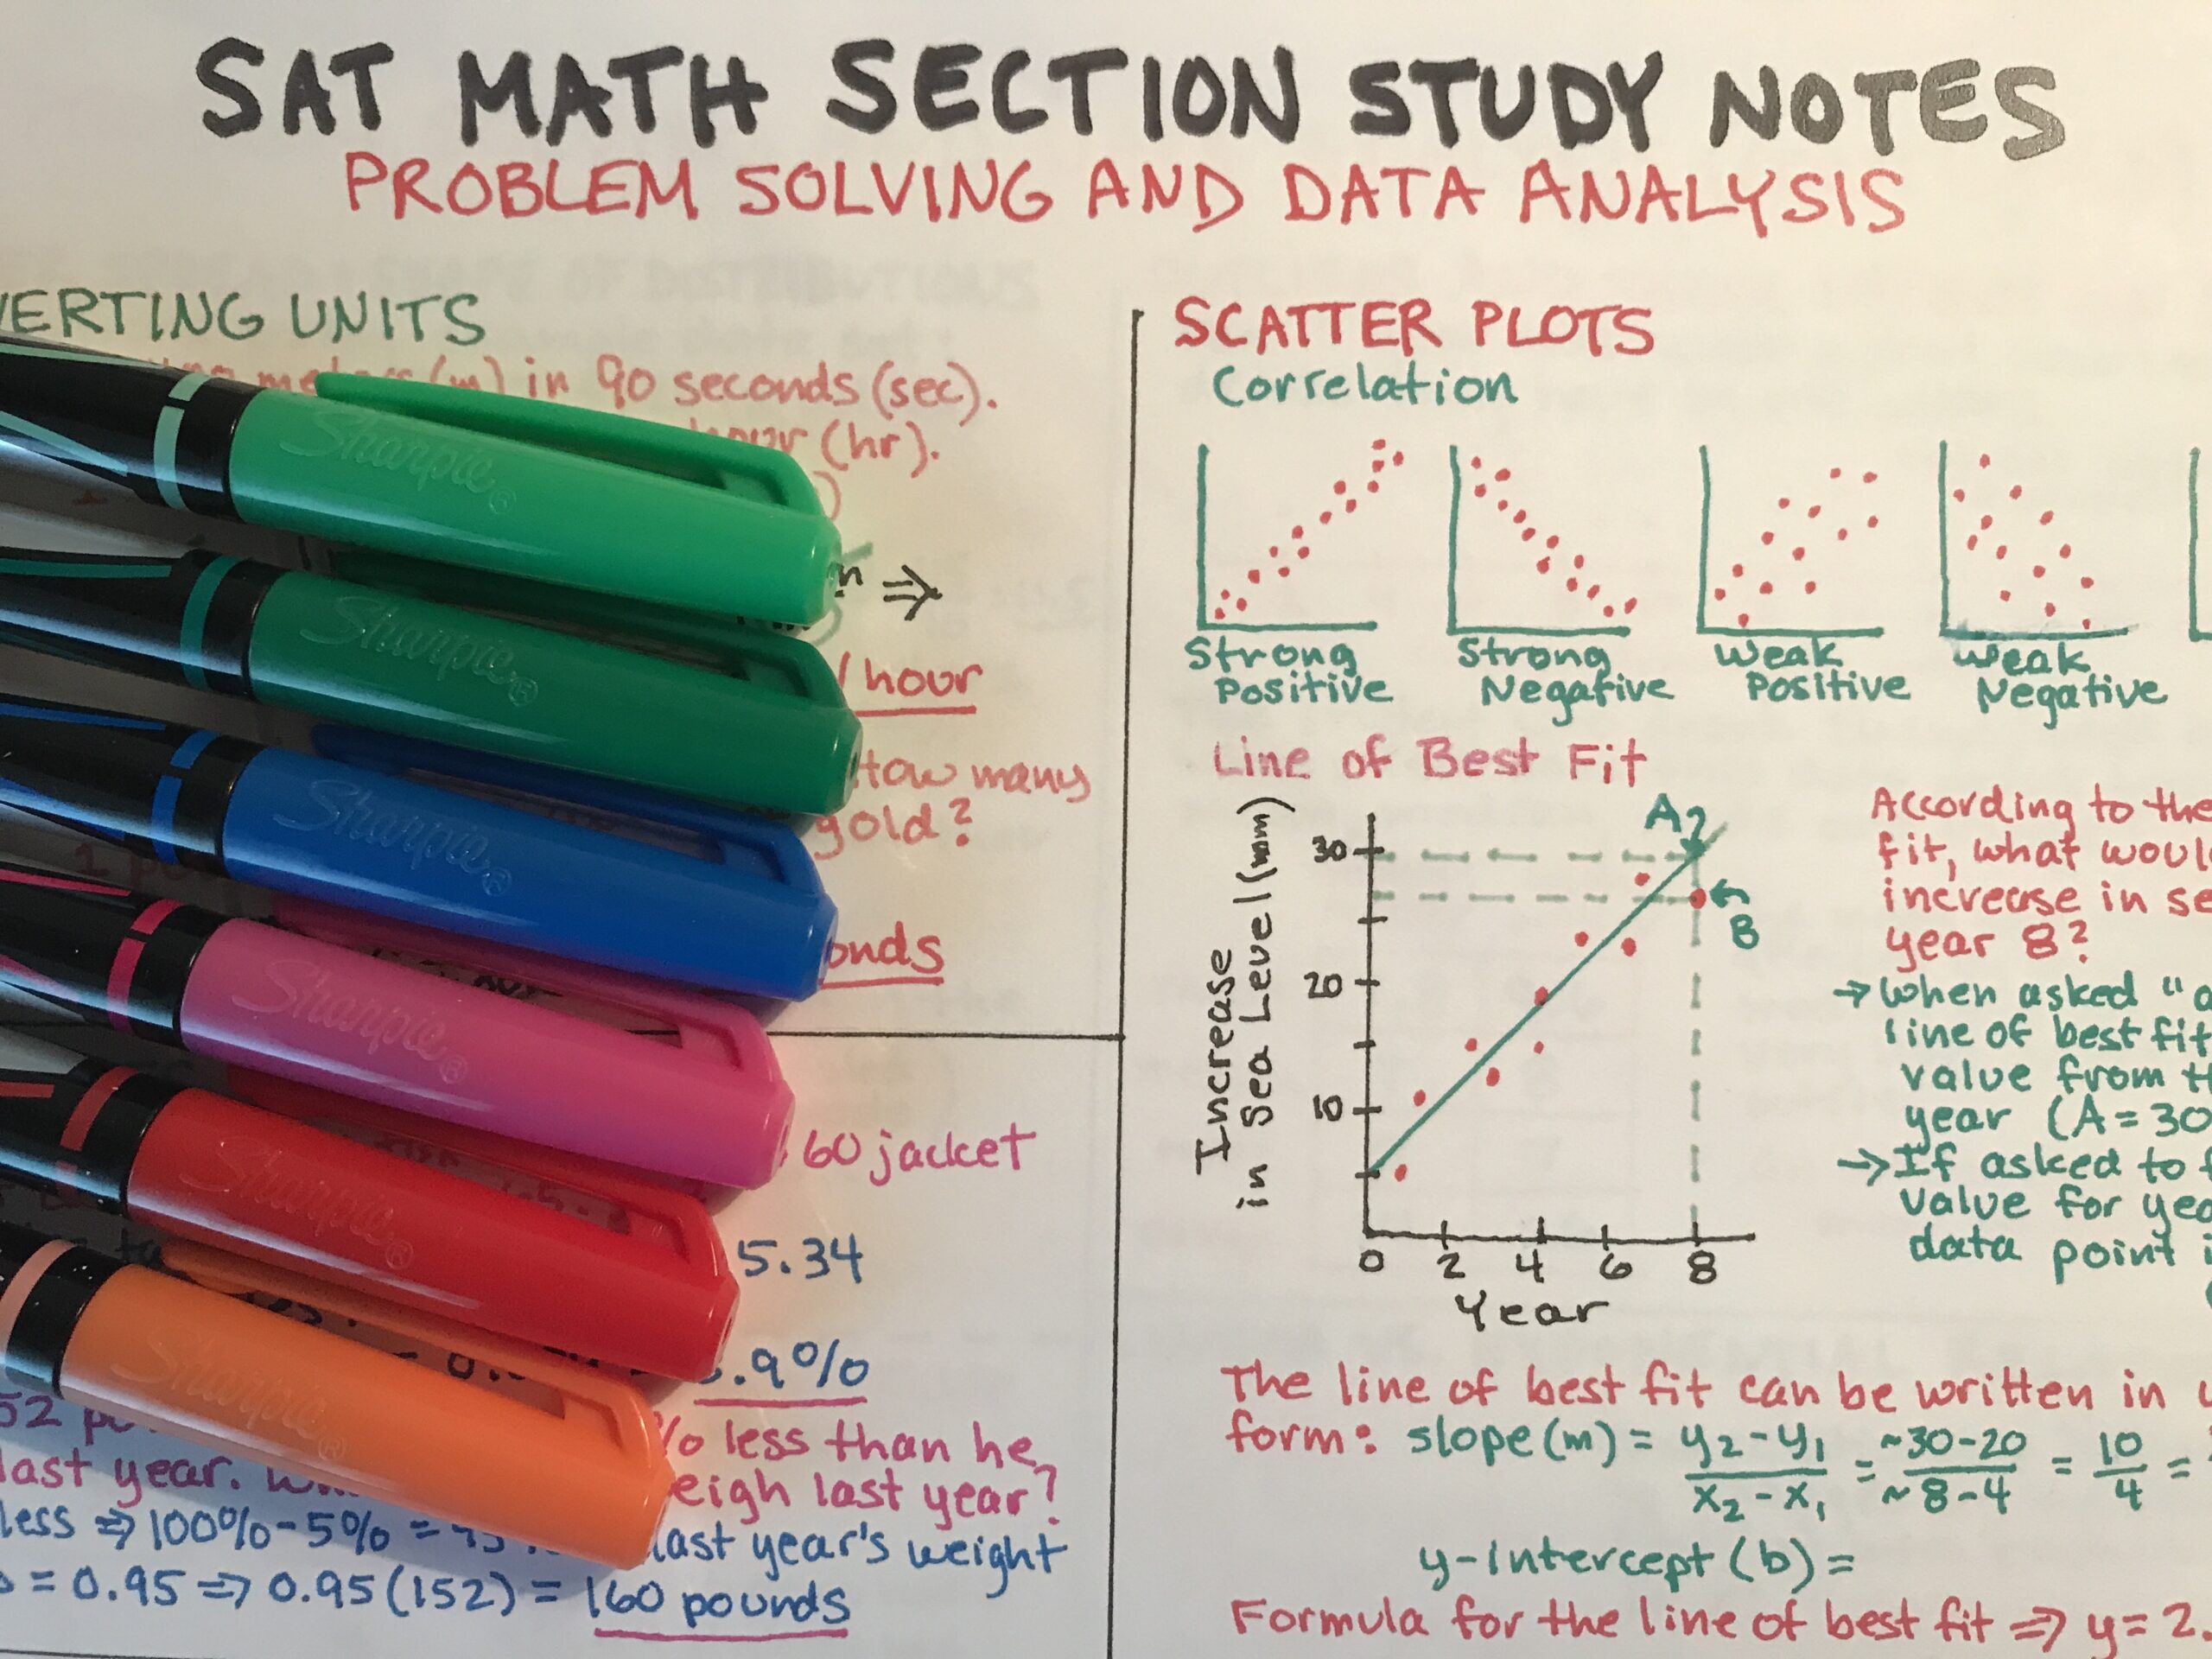 SAT MATH SECTION STUDY NOTES
PROBLEM SOLVING AND DATA ANALYSIS
VERTING UNITS
in 90 seconds (sec).
hour (hr).
⇒
/hour
How many
gold?
onds
60 jacket
5.34
.9%
52
% less than he
last year.
eigh last year?
less ⇒ 100% - 5% =
last year's weight
= 0.95 ⇒ 0.95 (152) = 160 pounds
Sharpie®
Sharpie®
Sharpie®
Sharpie®
Sharpie®
Sharpie®
SCATTER PLOTS
Correlation
Strong Positive
Strong Negative
Weak Positive
Weak Negative
Line of Best Fit
Increase in Sea Level (mm)
30
20
10
A
B
0 2 4 6 8
Year
According to the
fit, what woul
increase in se
year 8?
→ When asked "a
line of best fit
value from th
year (A = 30
→ If asked to f
value for yea
data point i
The line of best fit can be written in
form: slope (m) = y2 - y1 / x2 - x1 = ~30 - 20 / ~8 - 4 = 10 / 4 =
y-intercept (b) =
Formula for the line of best fit ⇒ y = 2.